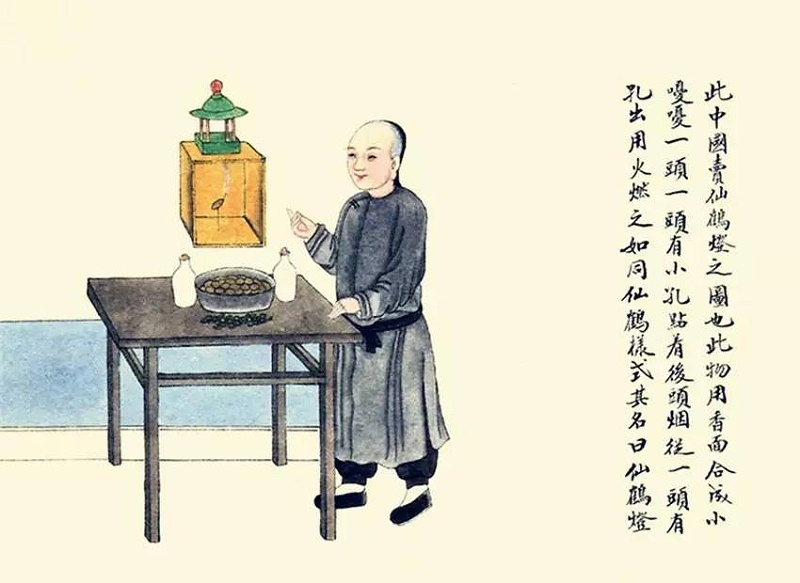 此中國賣仙鶴燈之圖也此物用香面合成小
嗄嗄一頭一頭有小孔點着後頭烟從一頭有
孔出用火燃之如同仙鶴樣式其名曰仙鶴燈